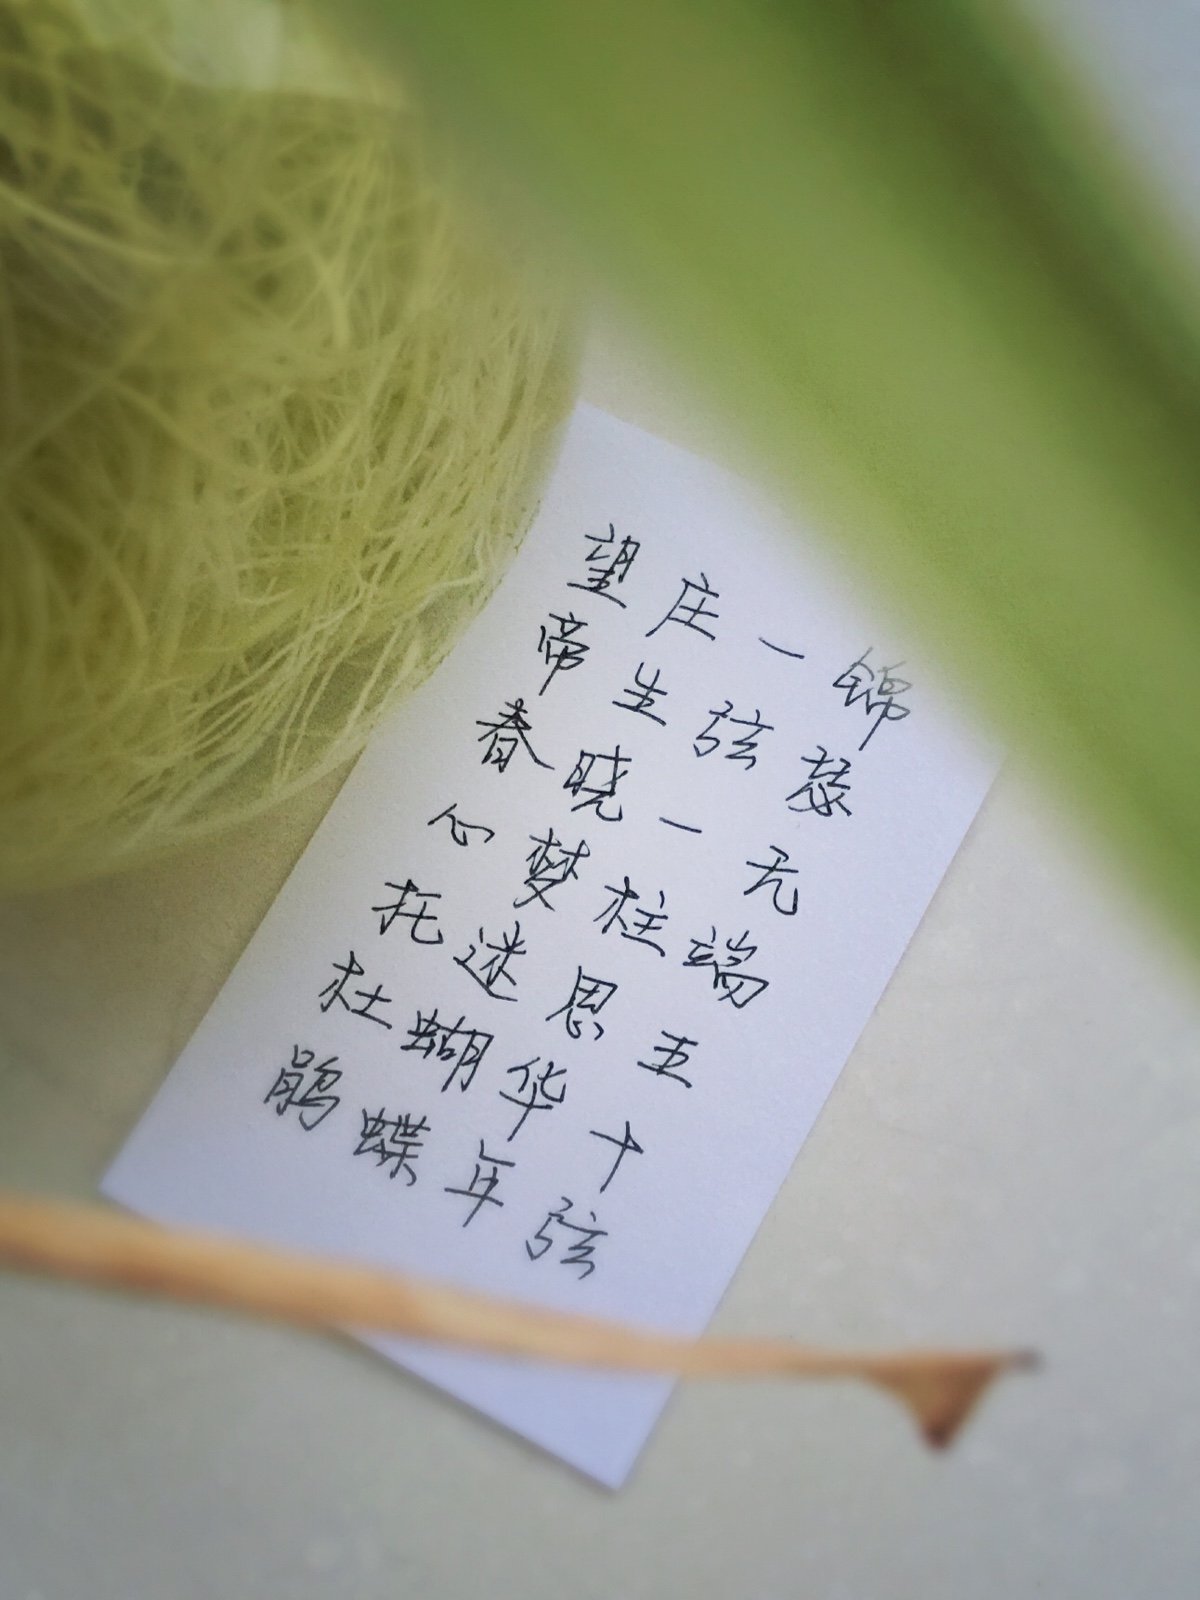 锦瑟无端五十弦
一弦一柱思华年
庄生晓梦迷蝴蝶
望帝春心托杜鹃